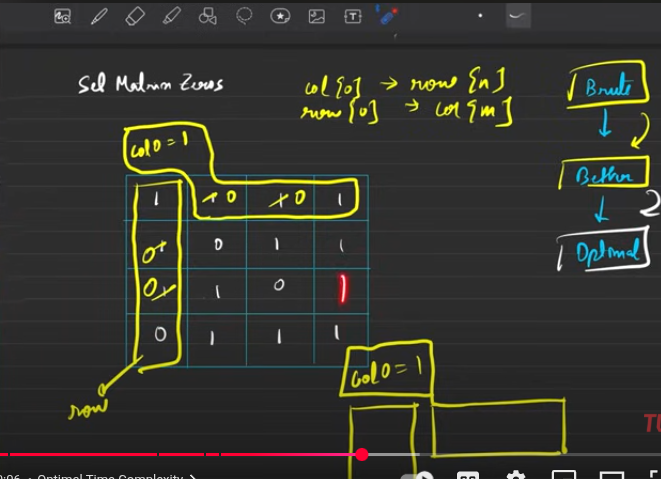 Set Matrix Zeros
col[0] → row[n]
row[0] → col[m]
Brute
↓
Better
↓ 2
Optimal
col0 = 1
1 0 0 1
0 0 1 1
0 1 0 1
0 1 1 1
row
col0 = 1
Optimal Time Complexity >